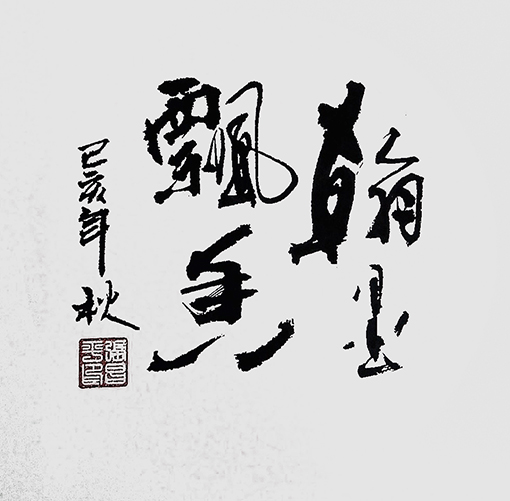 翰墨
飘香
己亥年
秋